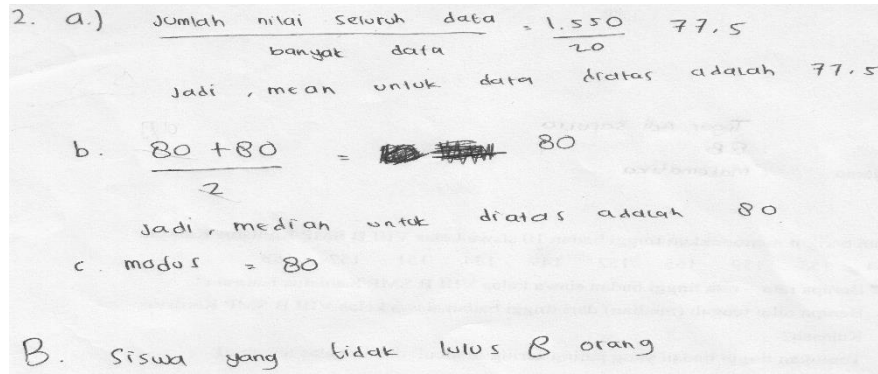 2. a.) Jumlah nilai seluruh data = 1.550 77,5
banyak data 20
Jadi, mean untuk data diatas adalah 77,5
b. 80 + 80 = 80
2
Jadi, median untuk diatas adalah 80
c. modus = 80
B. Siswa yang tidak lulus 8 orang